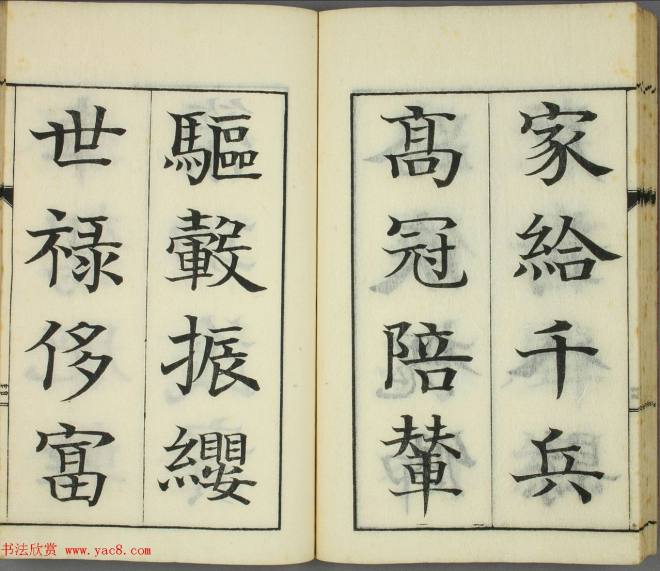 家給千兵
髙冠陪輦
驅轂振纓
世禄侈富
书法欣赏 www.yac8.com